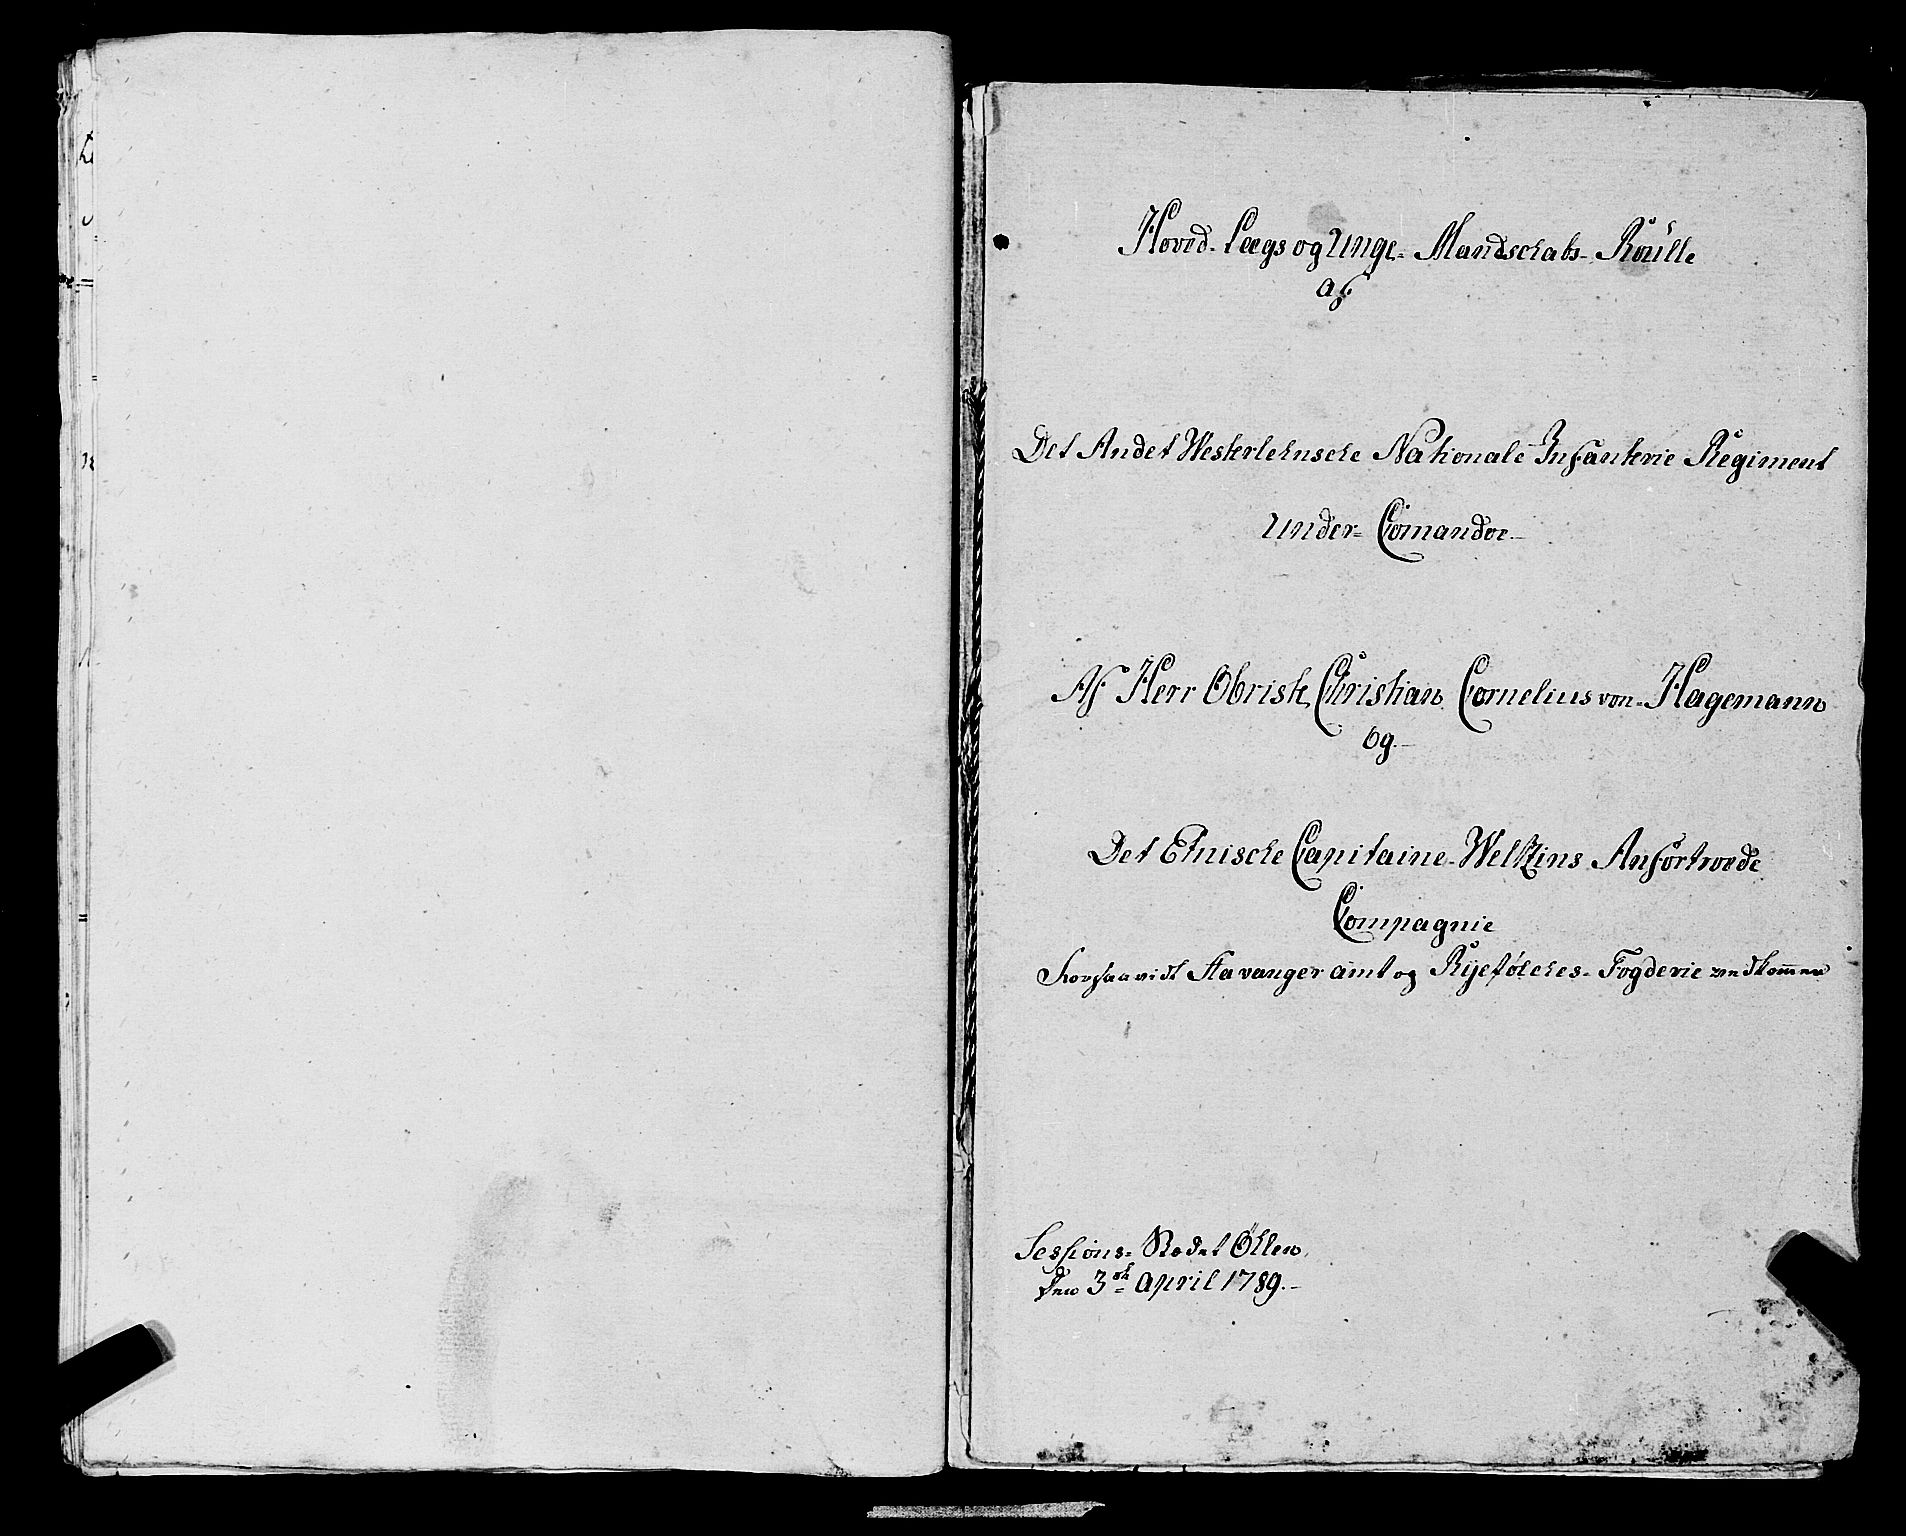 Hoved-Lægs og Unge-Mandschabs-Roülle
af
Det Andet Westerlehnsche Nationale Infanterie Regiment
Under= Comandoe
Af Herr Obriste Christian Cornelius von-Hagemann
Og
Det Etnische Capitaine-Weltzins Anfortroede
Compagnie
Forsaavidt Stavanger amt og Ryefølches-Fogderie vedkommer
Sessions-Stædet Øhlen
den 3die April 1789.